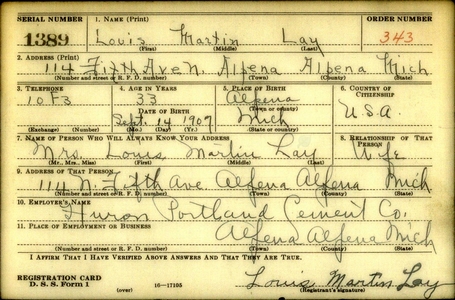 SERIAL NUMBER 1. NAME (Print) ORDER NUMBER
1389 Louis Martin Lay 343
(First) (Middle) (Last)
2. ADDRESS (Print)
114 Fifth Ave N. Alpena Alpena Mich
(Number and street or R. F. D. number) (Town) (County) (State)
3. TELEPHONE 4. AGE IN YEARS 5. PLACE OF BIRTH 6. COUNTRY OF CITIZENSHIP
10F3 33 Alpena U.S.A.
DATE OF BIRTH (Town or county)
Sept. 14 1907 Mich
(Exchange) (Number) (Mo.) (Day) (Yr.) (State or country)
7. NAME OF PERSON WHO WILL ALWAYS KNOW YOUR ADDRESS 8. RELATIONSHIP OF THAT PERSON
Mrs. Louis Martin Lay Wife
(Mr., Mrs., Miss) (First) (Middle) (Last)
9. ADDRESS OF THAT PERSON
114 N. Fifth Ave Alpena Alpena Mich
(Number and street or R. F. D. number) (Town) (County) (State)
10. EMPLOYER'S NAME
Huron Portland Cement Co.
11. PLACE OF EMPLOYMENT OR BUSINESS
Alpena Alpena Mich
(Number and street or R. F. D. number) (Town) (County) (State)
I AFFIRM THAT I HAVE VERIFIED ABOVE ANSWERS AND THAT THEY ARE TRUE.
REGISTRATION CARD
D. S. S. Form 1 (over) 16—17105 Louis Martin Lay
(Registrant's signature)